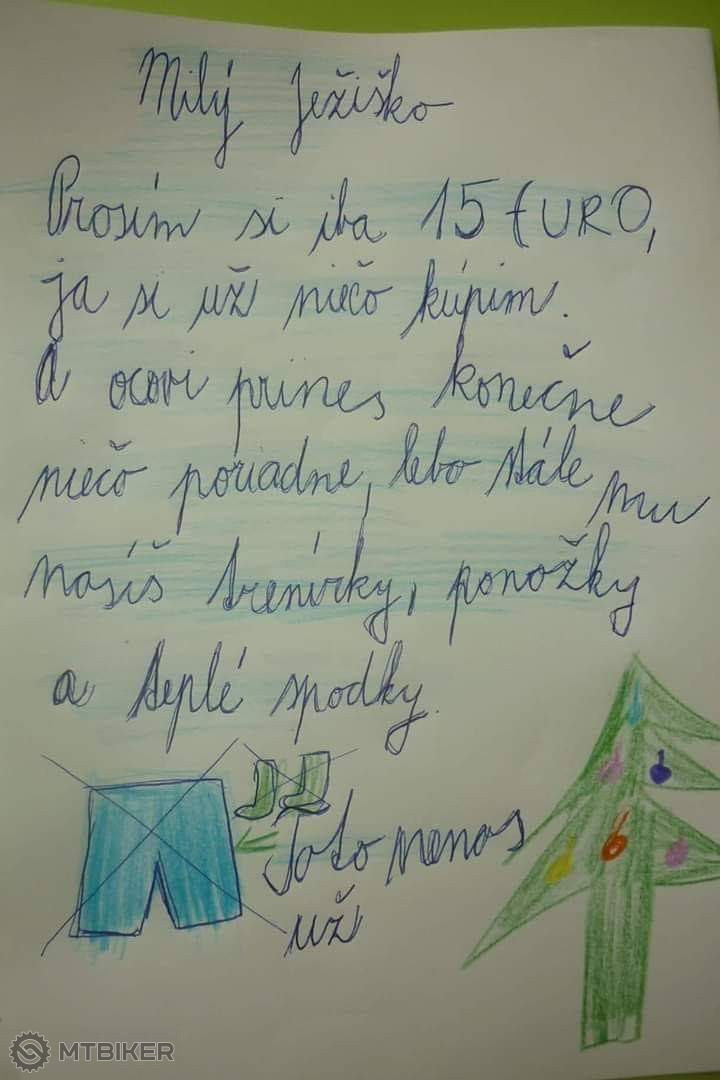 Milý Ježiško
Prosím si iba 15 EURO,
ja si už niečo kúpim.
A ocovi prines konečne
niečo poriadne, lebo stále mu
nosíš trenírky, ponožky
a teplé spodky.
Toto nenos
už
MTBIKER